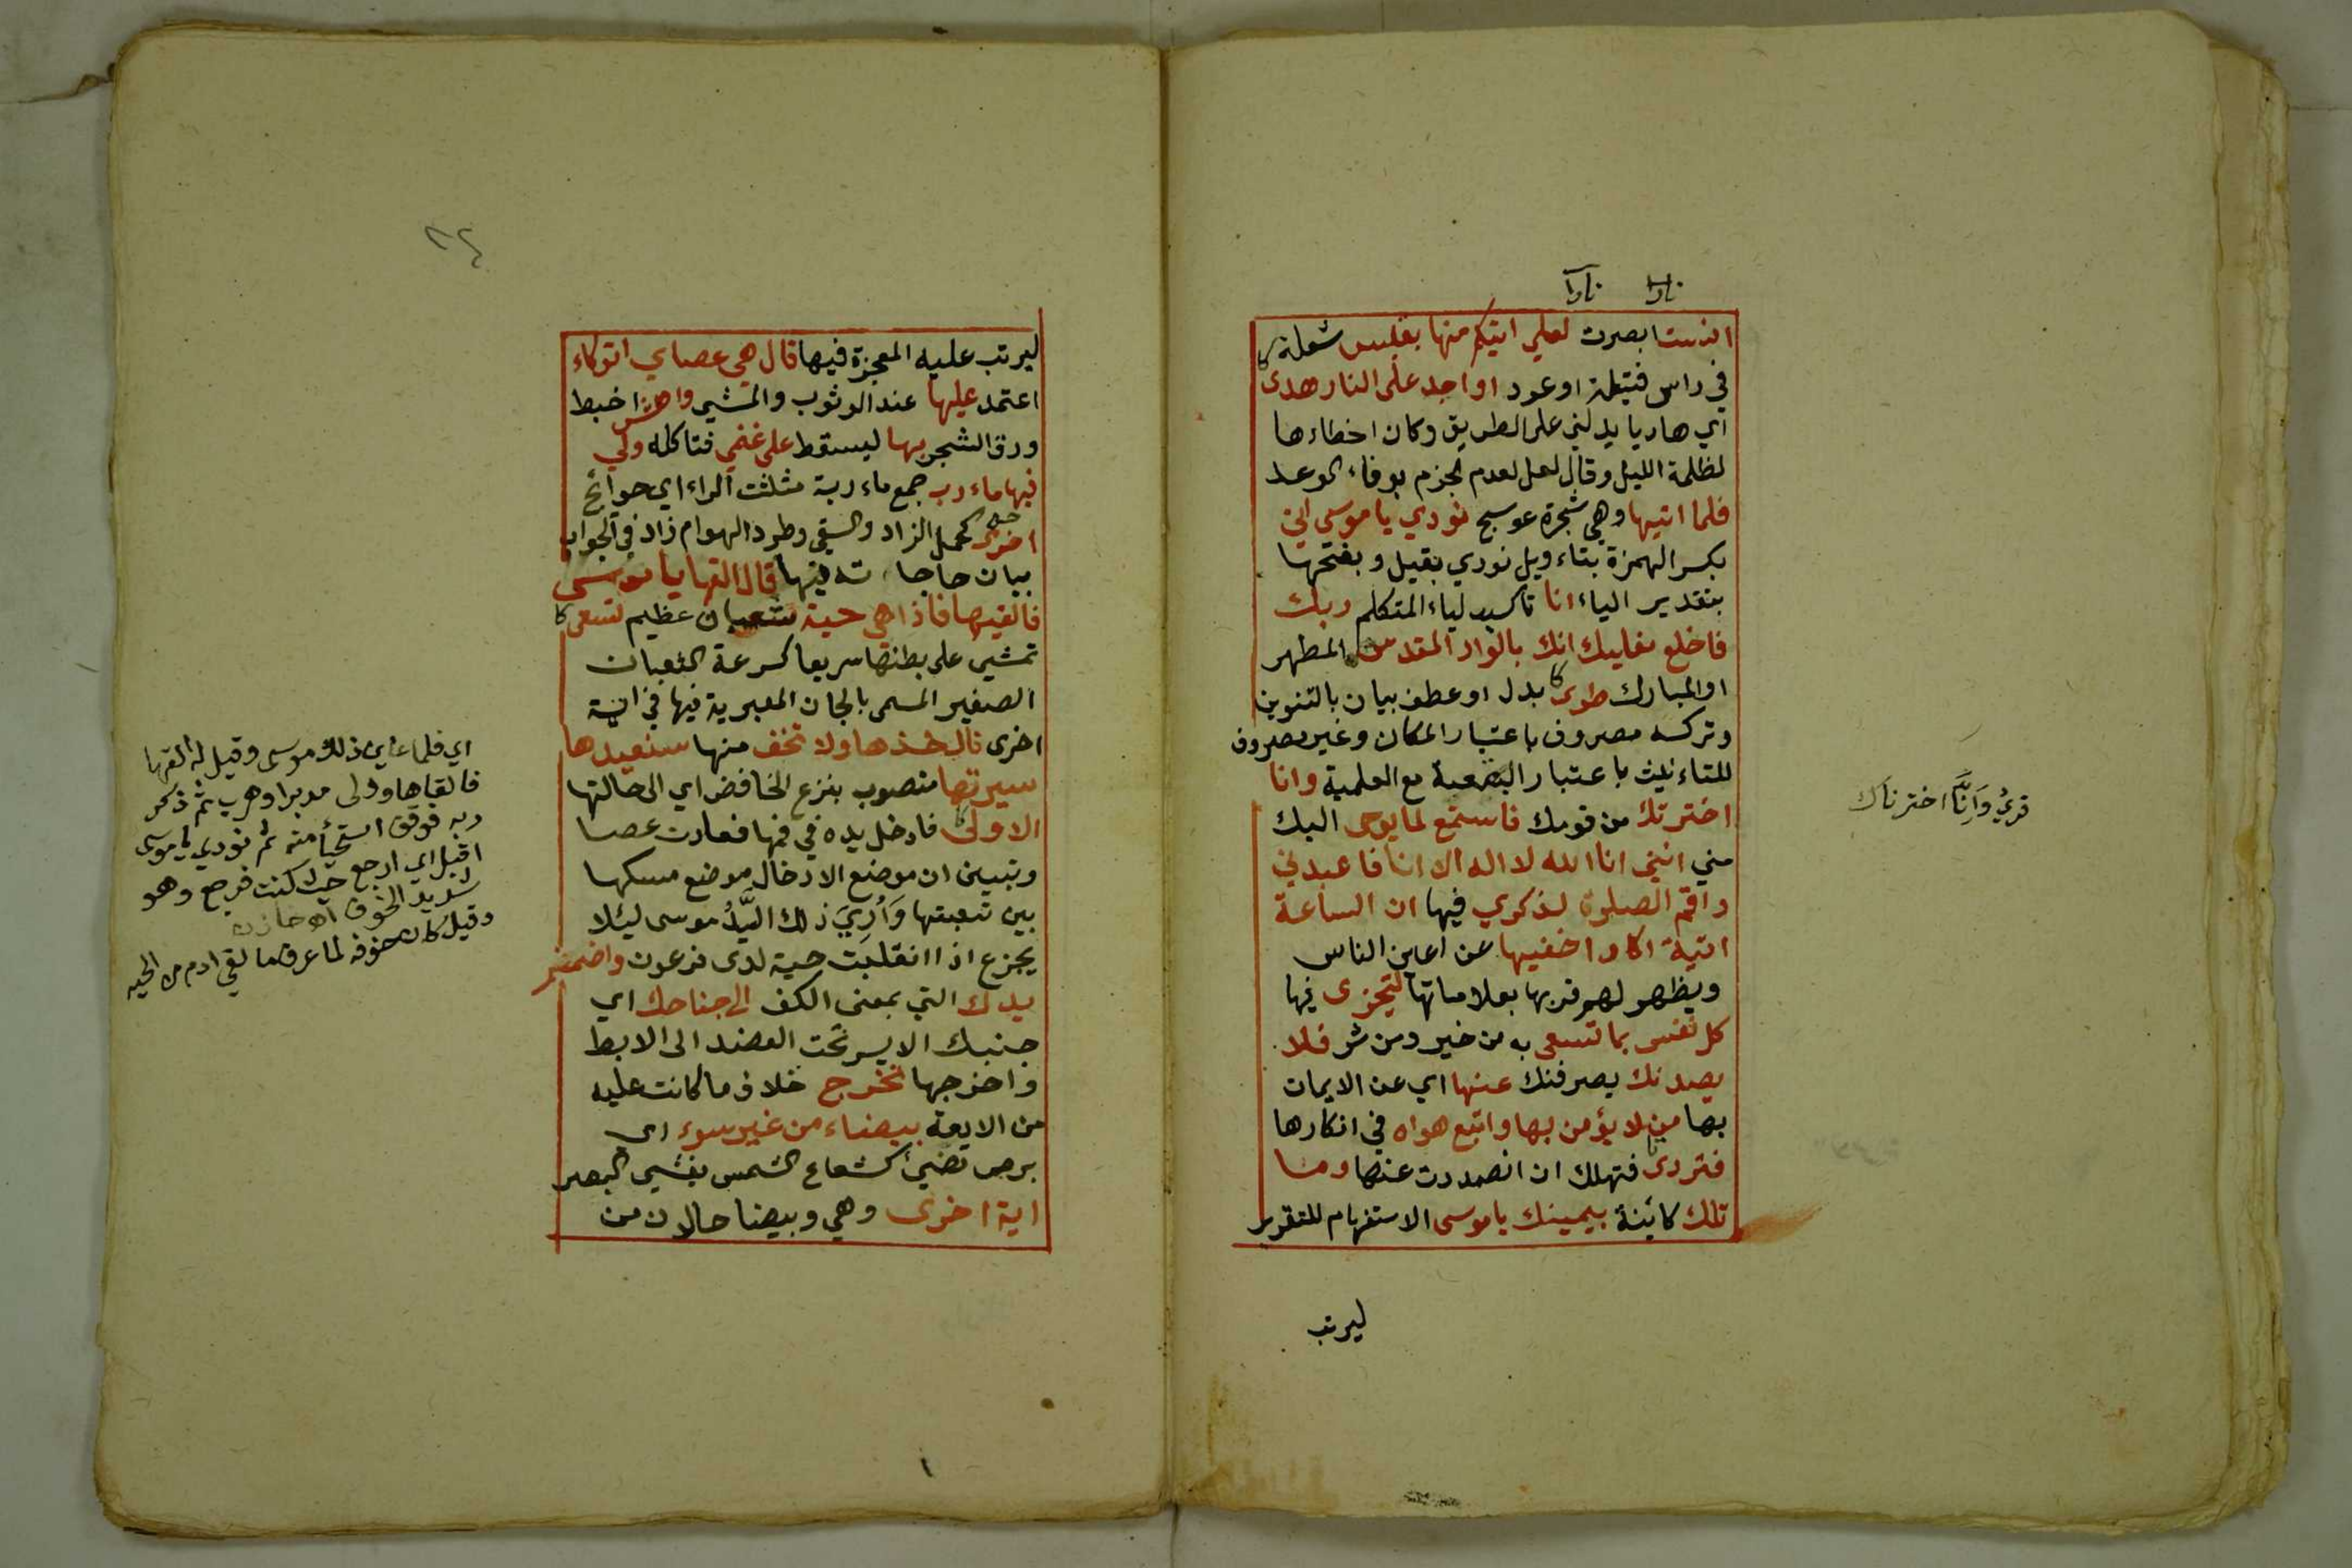 نارا نارا
انست ابصرت لعلي اتيكم منها بقبس شعلة
في راس فتيلة او عود او اجد على النار هدى
اي هاديا يدلني على الطريق وكان اخطاءها
لظلمة الليل وقال لعل لعدم الجزم بوفاء الوعد
فلما اتيها وهي شجرة عوسج نودي يا موسى اني
بكسر الهمزة بتاءويل نودي بقيل وبفتحها
بتقدير الياء انا تاكيد لياء المتكلم ربك
فاخلع نعليك انك بالواد المقدس المطهر
او المبارك طوى بدل او عطف بيان بالتنوين
وتركه مصروف باعتبار المكان وغير مصروف
للتاءنيث باعتبار البقعة مع العلمية وانا
اخترتك من قومك فاستمع لما يوحى اليك
مني انني انا الله لا اله الا انا فاعبدني
واقم الصلوة لذكري فيها ان الساعة
اتية اكاد اخفيها عن اعين الناس
ويظهر لهم قربها بعلاماتها لتجزى فيها
كل نفس بما تسعى به من خير ومن شر فلا
يصدنك يصرفنك عنها اي عن الايمان
بها من لا يؤمن بها واتبع هواه في انكارها
فتردى فتهلك ان انصددت عنها وما
تلك كائنة بيمينك يا موسى الاستفهام للتقرير
ليرتب
قرئ وَاِنَّا اخترناك
٢٤
ليرتب عليه المعجزة فيها قال هي عصاي اتوكاء
اعتمد عليها عند الوثوب والمشي واهش اخبط
ورق الشجر بها ليسقط على غنمي فتاكله ولي
فيها ماءرب جمع ماءربة مثلثت الراء اي حوائج
اخرى كحمل الزاد والسقي وطرد الهوام زاد في الجواب
بيان حاجاته فيها قال القها يا موسى
فالقيها فاذا هي حية ثعبان عظيم تسعى
تمشي على بطنها سريعا كسرعة الثعبان
الصغير المسمى بالجان المعبر به فيها في اية
اخرى قال خذها ولا تخف منها سنعيدها
سيرتها منصوب بنزع الخافض اي الى حالتها
الاولى فادخل يده في فمها فعادت عصا
وتبين ان موضع الادخال موضع مسكها
بين شعبتها وَاُرِيَ ذلك السَّيِّدُ موسى ليئلا
يجزع اذا انقلبت حية لدى فرعون واضمم
يدك التي بمعنى الكف الى جناحك اي
جنبك الايسر تحت العضد الى الابط
واخرجها تخرج خلاف ما كانت عليه
من الادمة بيضاء من غير سوء اي
برص تضيئ كشعاع الشمس تغشي البصر
اية اخرى وهي وبيضا حالان من
اي فلما عاين ذلك موسى وقيل له القها
فالقاها وولى مدبرا وهرب ثم ذكر
ربه فوقف استحيأ منه ثم نودي يا موسى
اقبل اي ارجع حيث كنت فرجع وهو
شديد الخوف اه خازن
وقيل كان خوفه لما عرف ما لقي ادم من الحيه
١